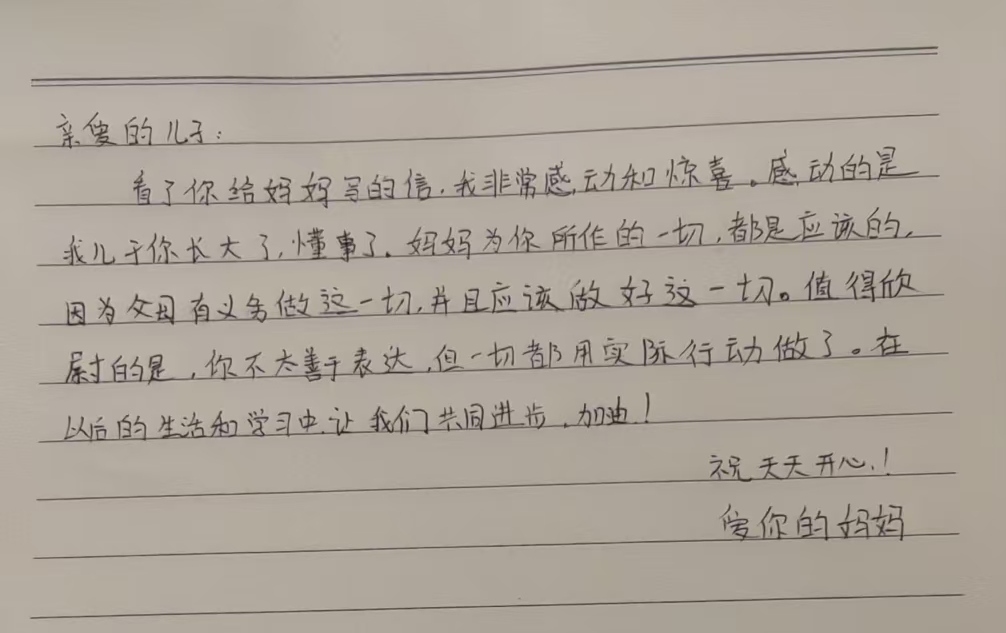 亲爱的儿子：
看了你给妈妈写的信，我非常感动和惊喜。感动的是
我儿子你长大了，懂事了。妈妈为你所作的一切，都是应该的，
因为父母有义务做这一切，并且应该做好这一切。值得欣
慰的是，你不太善于表达，但一切都用实际行动做了。在
以后的生活和学习中，让我们共同进步，加油！
祝天天开心！
爱你的妈妈